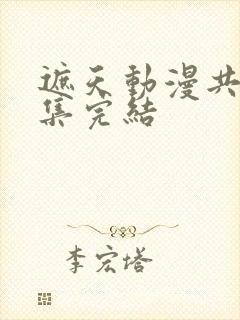 遮天動漫共
集完結
李宏塔